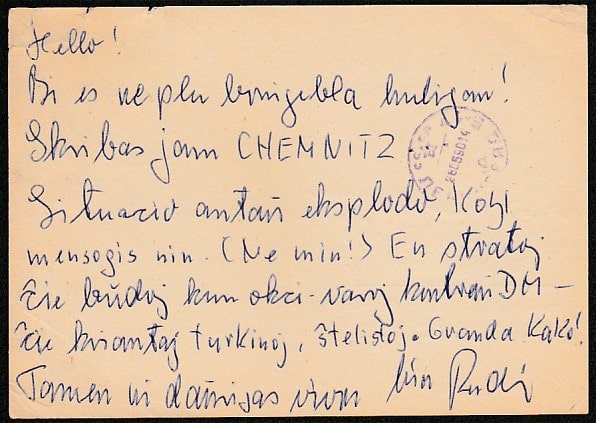 Hello!
Vi es ne plu bringebla huligan!
Skribas jam CHEMNITZ.
Situacio antaŭ eksplodo, Kohl
mensogis nin. (Ne min!) En stratoj
ĉie bŭdoj kun okci-varoj kontraŭ DM –
ĉie kriantaj turkinoj, ŝtelistoj. Granda Kako!
Tamen ni daŭrigas vivon Rudi